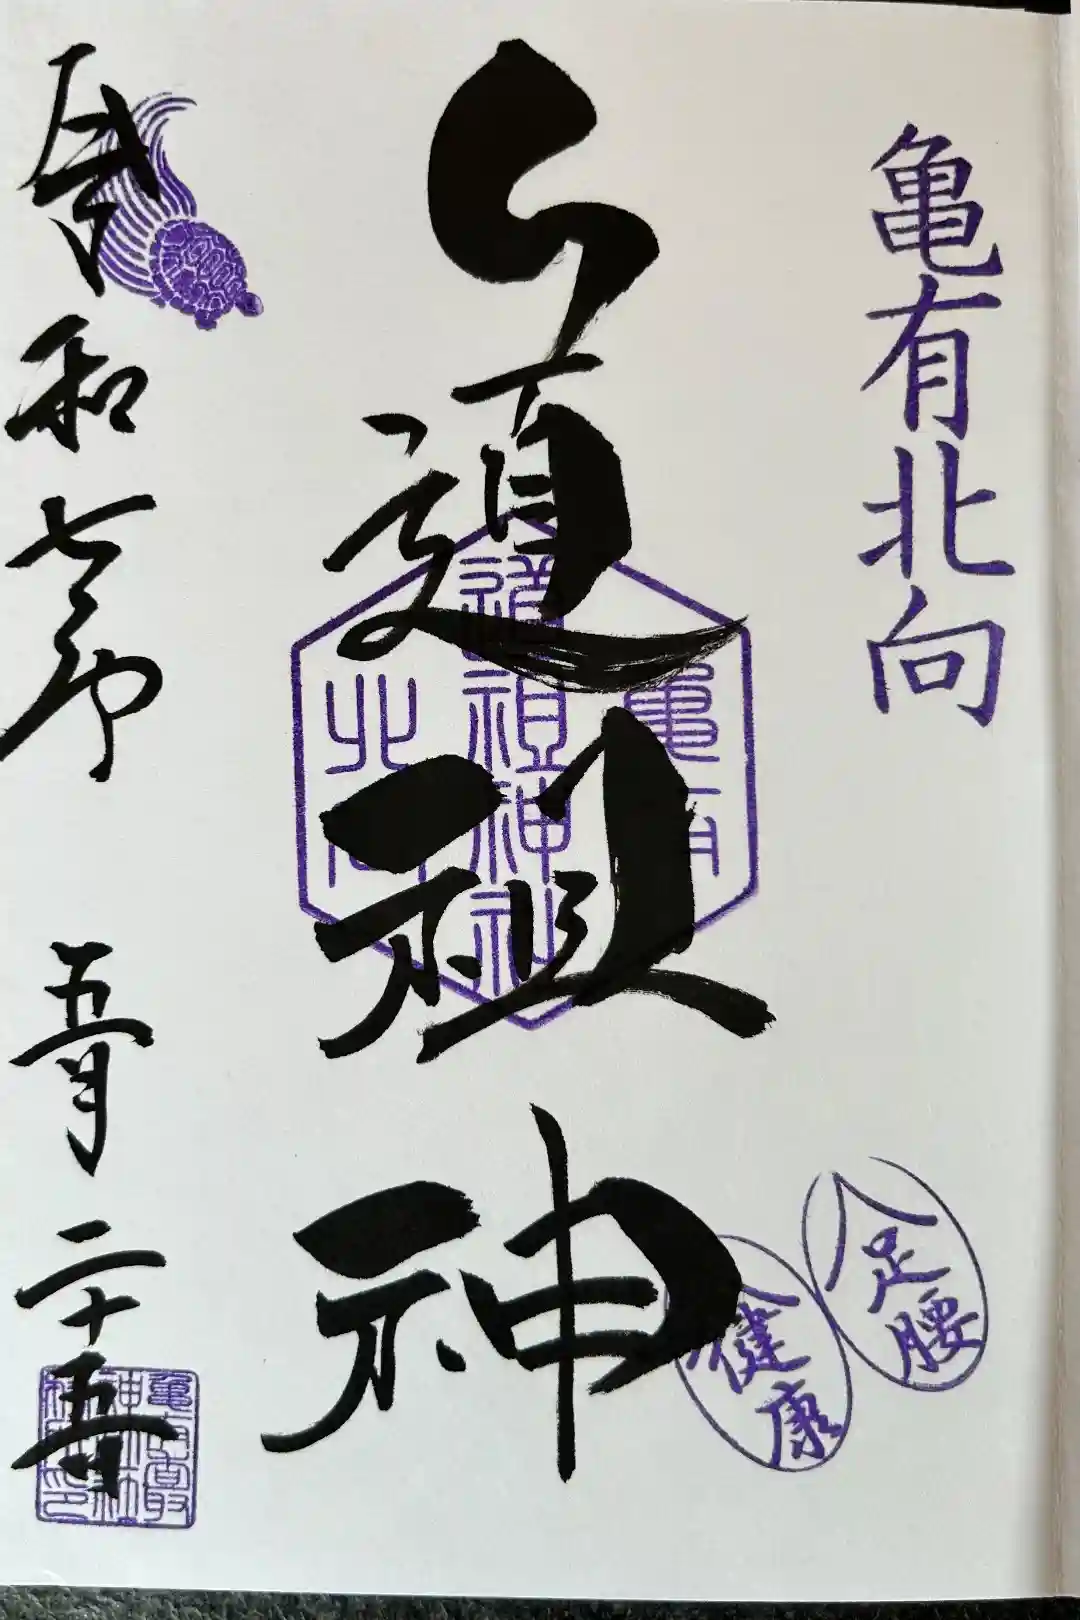 亀有北向
道祖神
足腰
健康
亀有
道祖神社
北向
令和七年 五月 二十五日